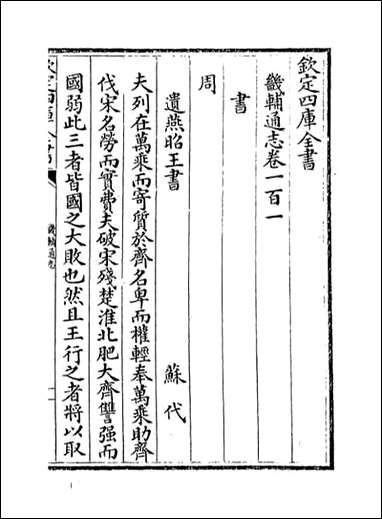 欽定四庫全書
畿輔通志卷一百一
書
周
遺燕昭王書 蘇代
夫列在萬乘而寄質於齊名卑而權輕奉萬乘助齊
伐宋名勞而實費夫破宋殘楚淮北肥大齊讐强而
國弱此三者皆國之大敗也然且王行之者將以取
欽定四庫全書
畿輔通志